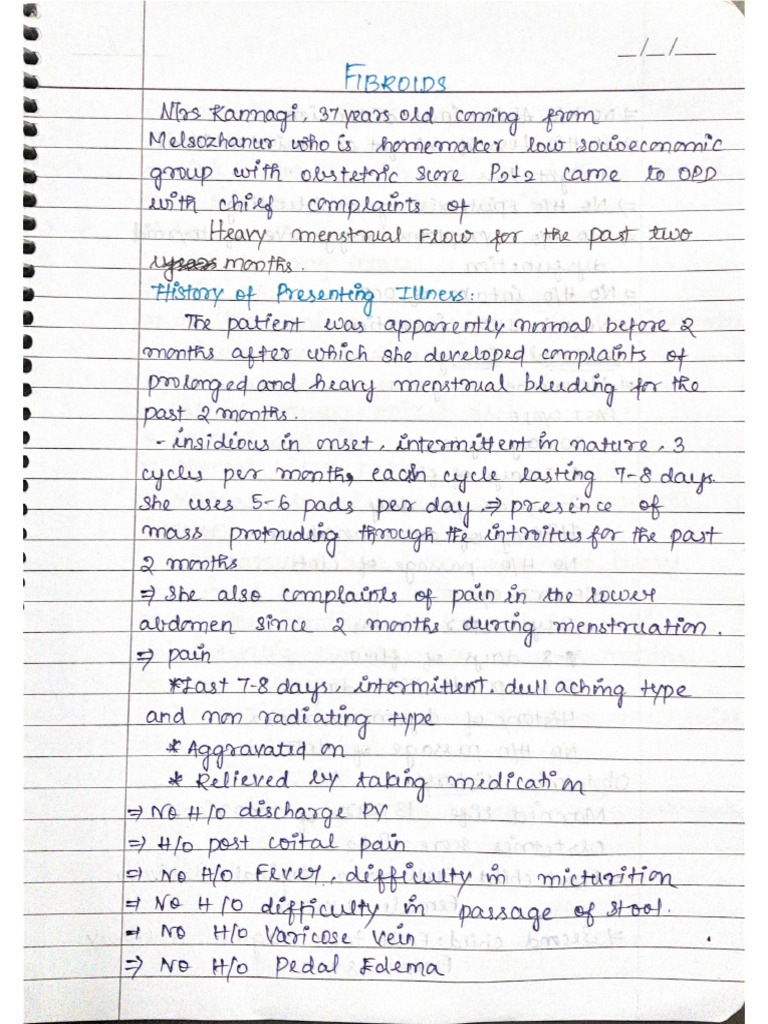 _/_/___
FIBROIDS
Mrs Kannagi, 37 years old coming from
Melsozhanur who is homemaker low socioeconomic
group with obstetric score P2L2 came to OPD
with chief complaints of
Heavy menstrual Flow for the past two
months.
History of Presenting Illness:
The patient was apparently normal before 2
months after which she developed complaints of
prolonged and heavy menstrual bleeding for the
past 2 months.
- insidious in onset, intermittent in nature, 3
cycles per month, each cycle lasting 7-8 days.
She uses 5-6 pads per day ⇒ presence of
mass protruding through the introitus for the past
2 months
⇒ She also complaints of pain in the lower
abdomen since 2 months during menstruation.
⇒ pain
*Last 7-8 days, intermittent, dull aching type
and non radiating type
* Aggravated on
* Relieved by taking medication
⇒ NO H/O discharge PV
⇒ H/O post coital pain
⇒ NO H/O Fever, difficulty in micturition
⇒ NO H/O difficulty in passage of stool.
⇒ NO H/O Varicose vein
⇒ NO H/O Pedal Edema